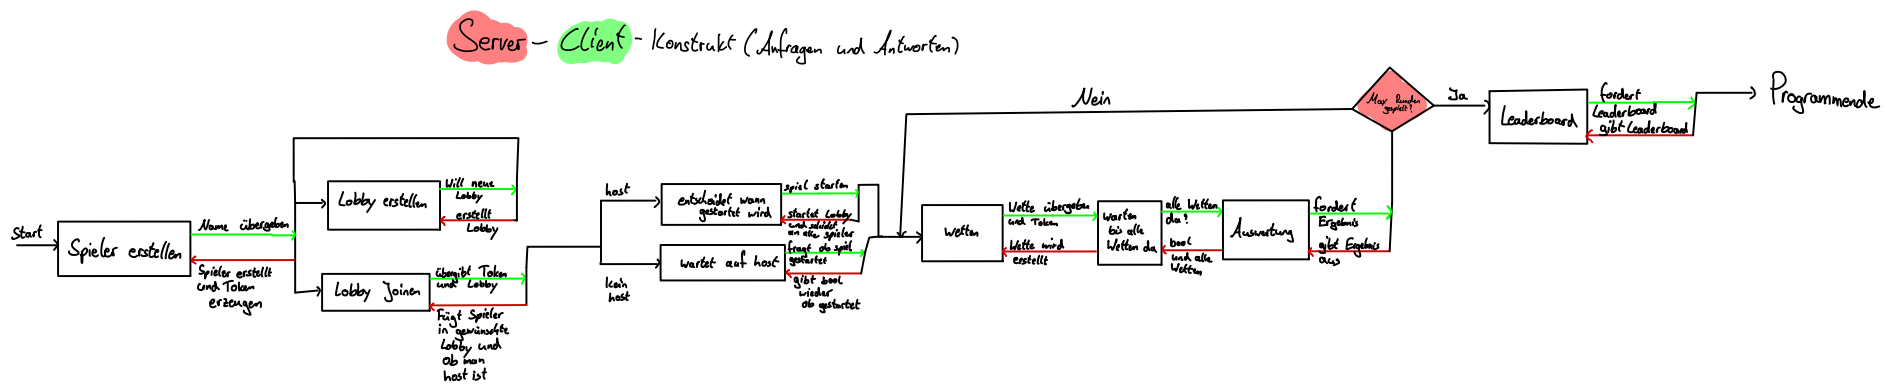 Server - Client - Konstrukt (Anfragen und Antworten)
Start
Spieler erstellen
Name übergeben
Spieler erstellt
und Token
erzeugen
Lobby erstellen
Will neue
Lobby
erstellt
Lobby
Lobby Joinen
übergibt Token
und Lobby
Fügt Spieler
in gewünschte
Lobby und
ob man
host ist
host
kein
host
entscheidet wann
gestartet wird
spiel starten
startet Lobby
und
an alle spieler
wartet auf host
fragt ob spiel
gestartet
gibt bool
wieder
ob gestartet
Nein
wetten
Wette übergeben
und Token
Wette wird
erstellt
warten
bis alle
Wetten da
alle Wetten
da?
bool
und alle
Wetten
Auswertung
fordert
Ergebnis
gibt Ergebnis
aus
Max Runden
gespielt?
Ja
Leaderboard
fordert
Leaderboard
gibt Leaderboard
Programmende